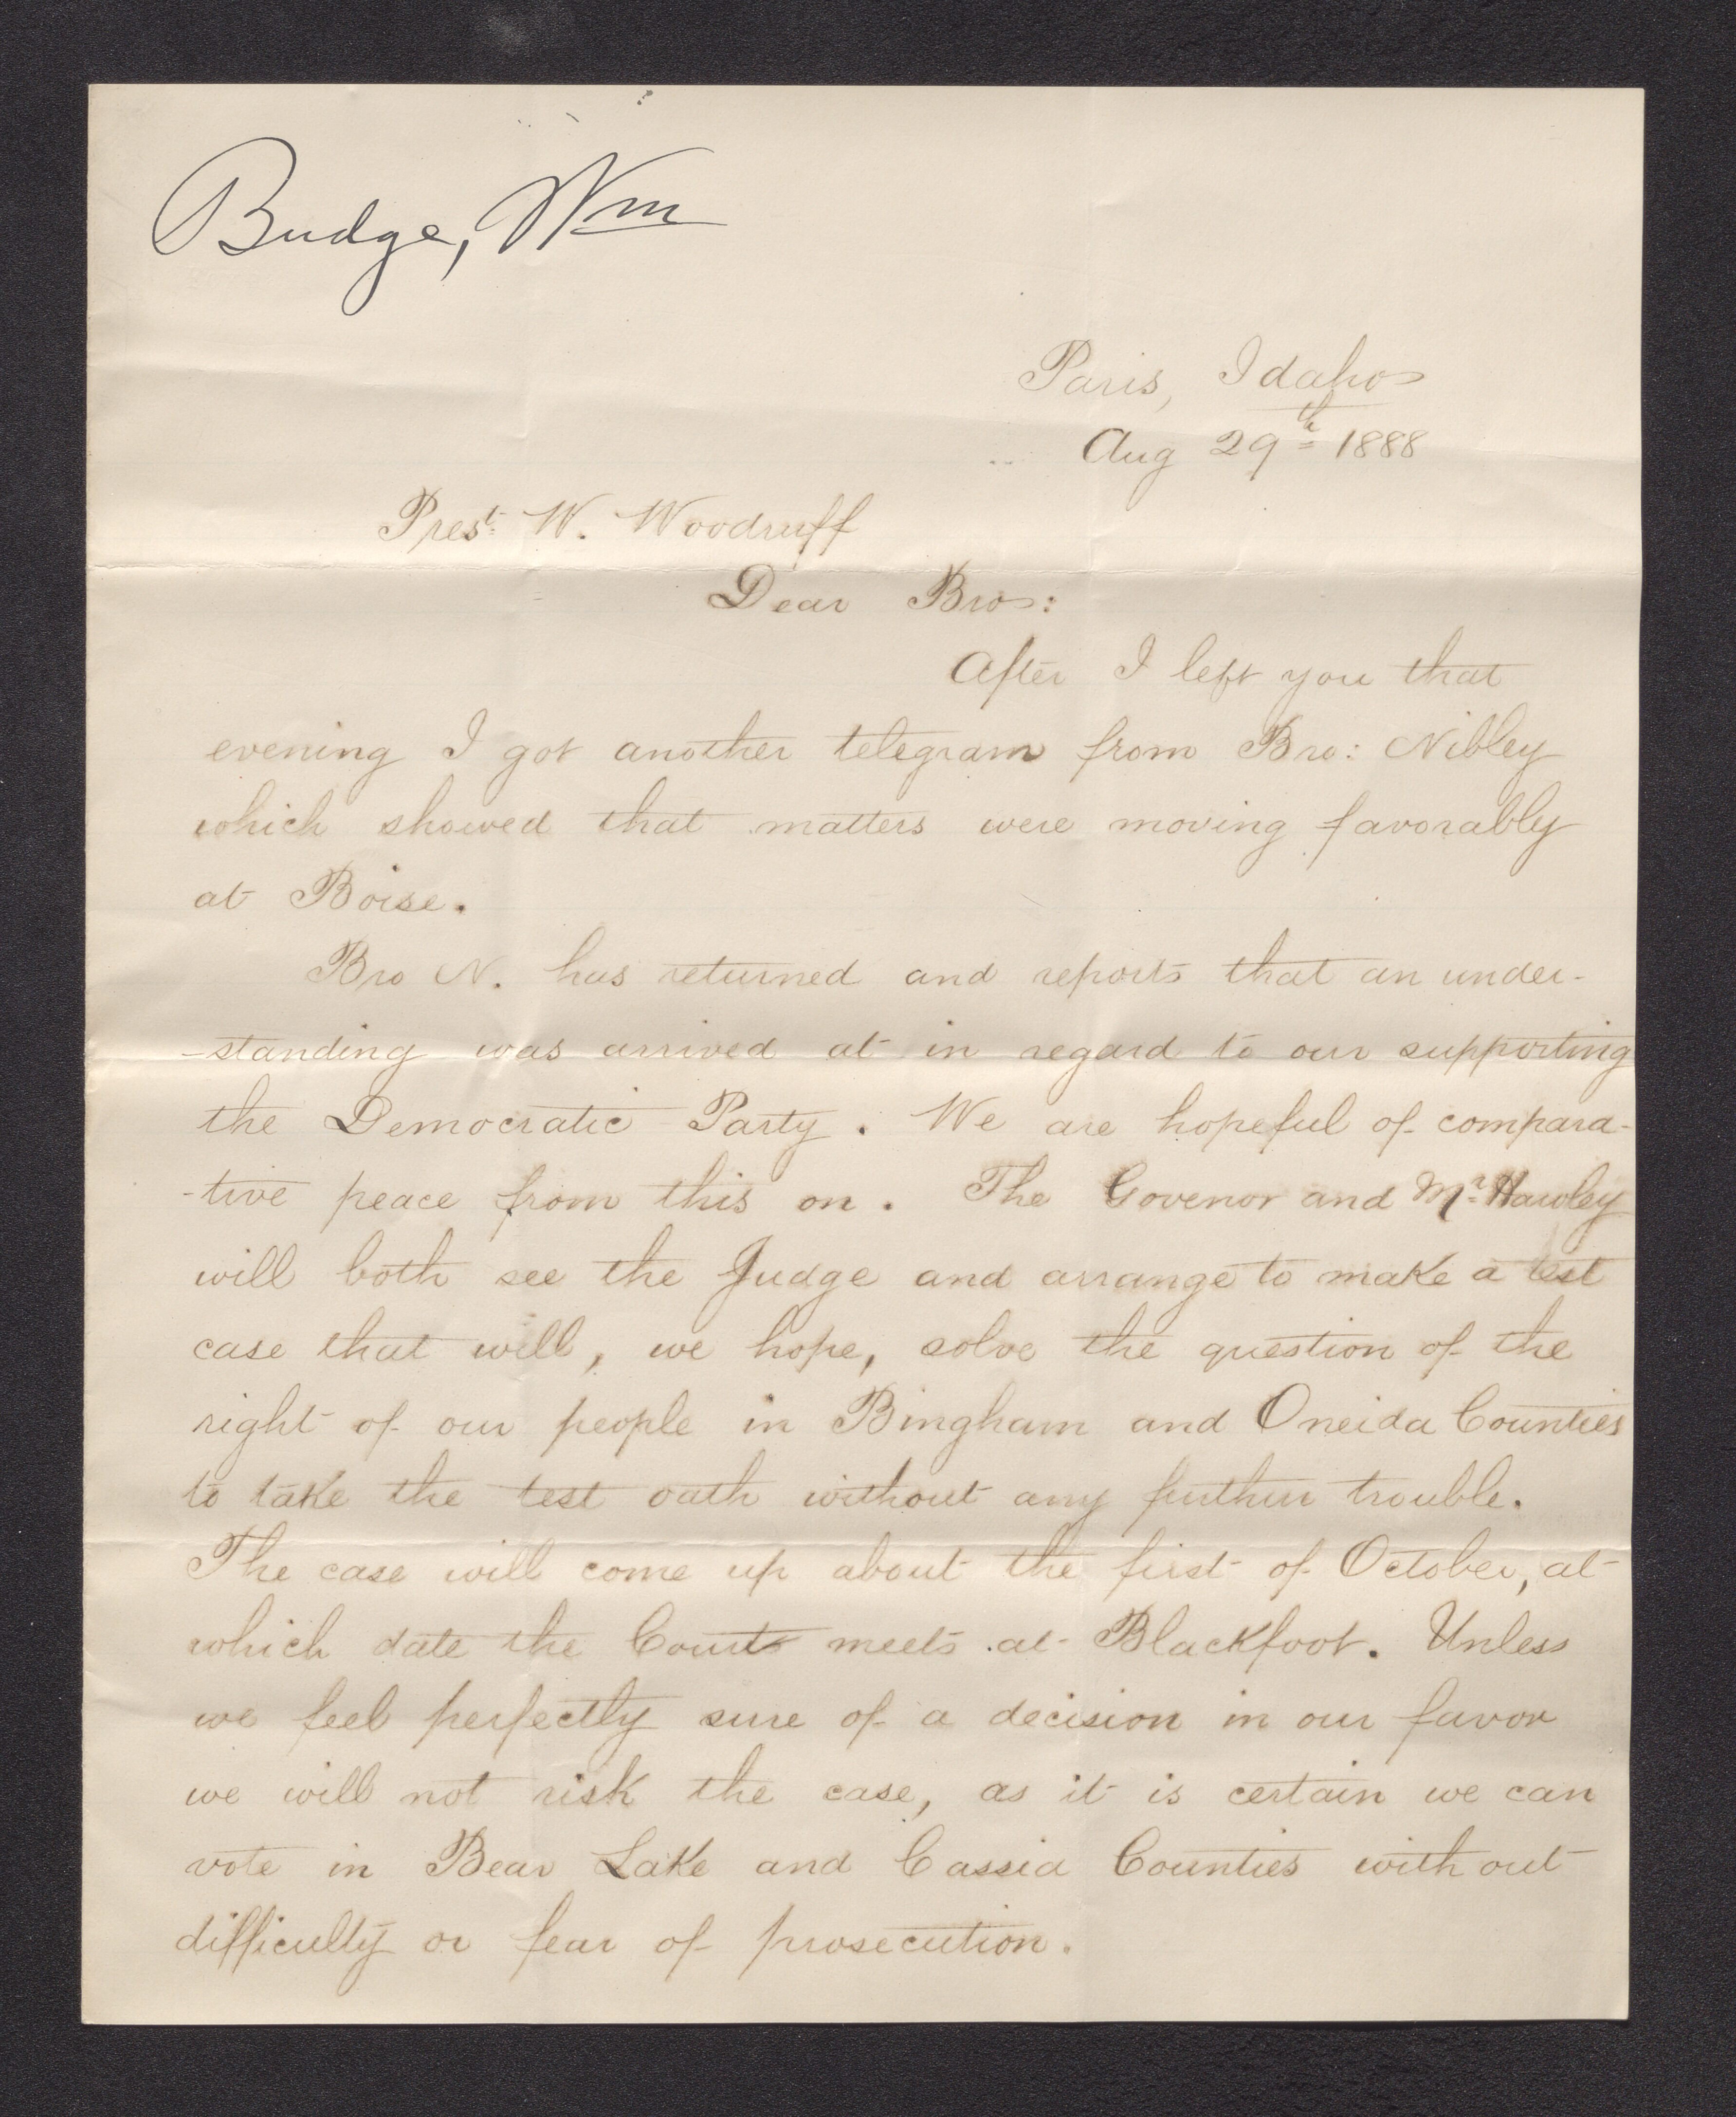 Budge, Wm
Paris, Idaho
Aug 29th 1888
Prest. W. Woodruff
Dear Bro:
After I left you that
evening I got another telegram from Bro: Nibley
which showed that matters were moving favorably
at Boise.
Bro N. has returned and reports that an under-
-standing was arrived at in regard to our supporting
the Democratic Party. We are hopeful of compara-
-tive peace from this on. The Govenor and Mr. Hawley
will both see the Judge and arrange to make a test
case that will, we hope, solve the question of the
right of our people in Bingham and Oneida Counties
to take the test oath without any further trouble.
The case will come up about the first of October, at
which date the Court meets at Blackfoot. Unless
we feel perfectly sure of a decision in our favor
we will not risk the case, as it is certain we can
vote in Bear Lake and Cassia Counties with out
difficulty or fear of prosecution.